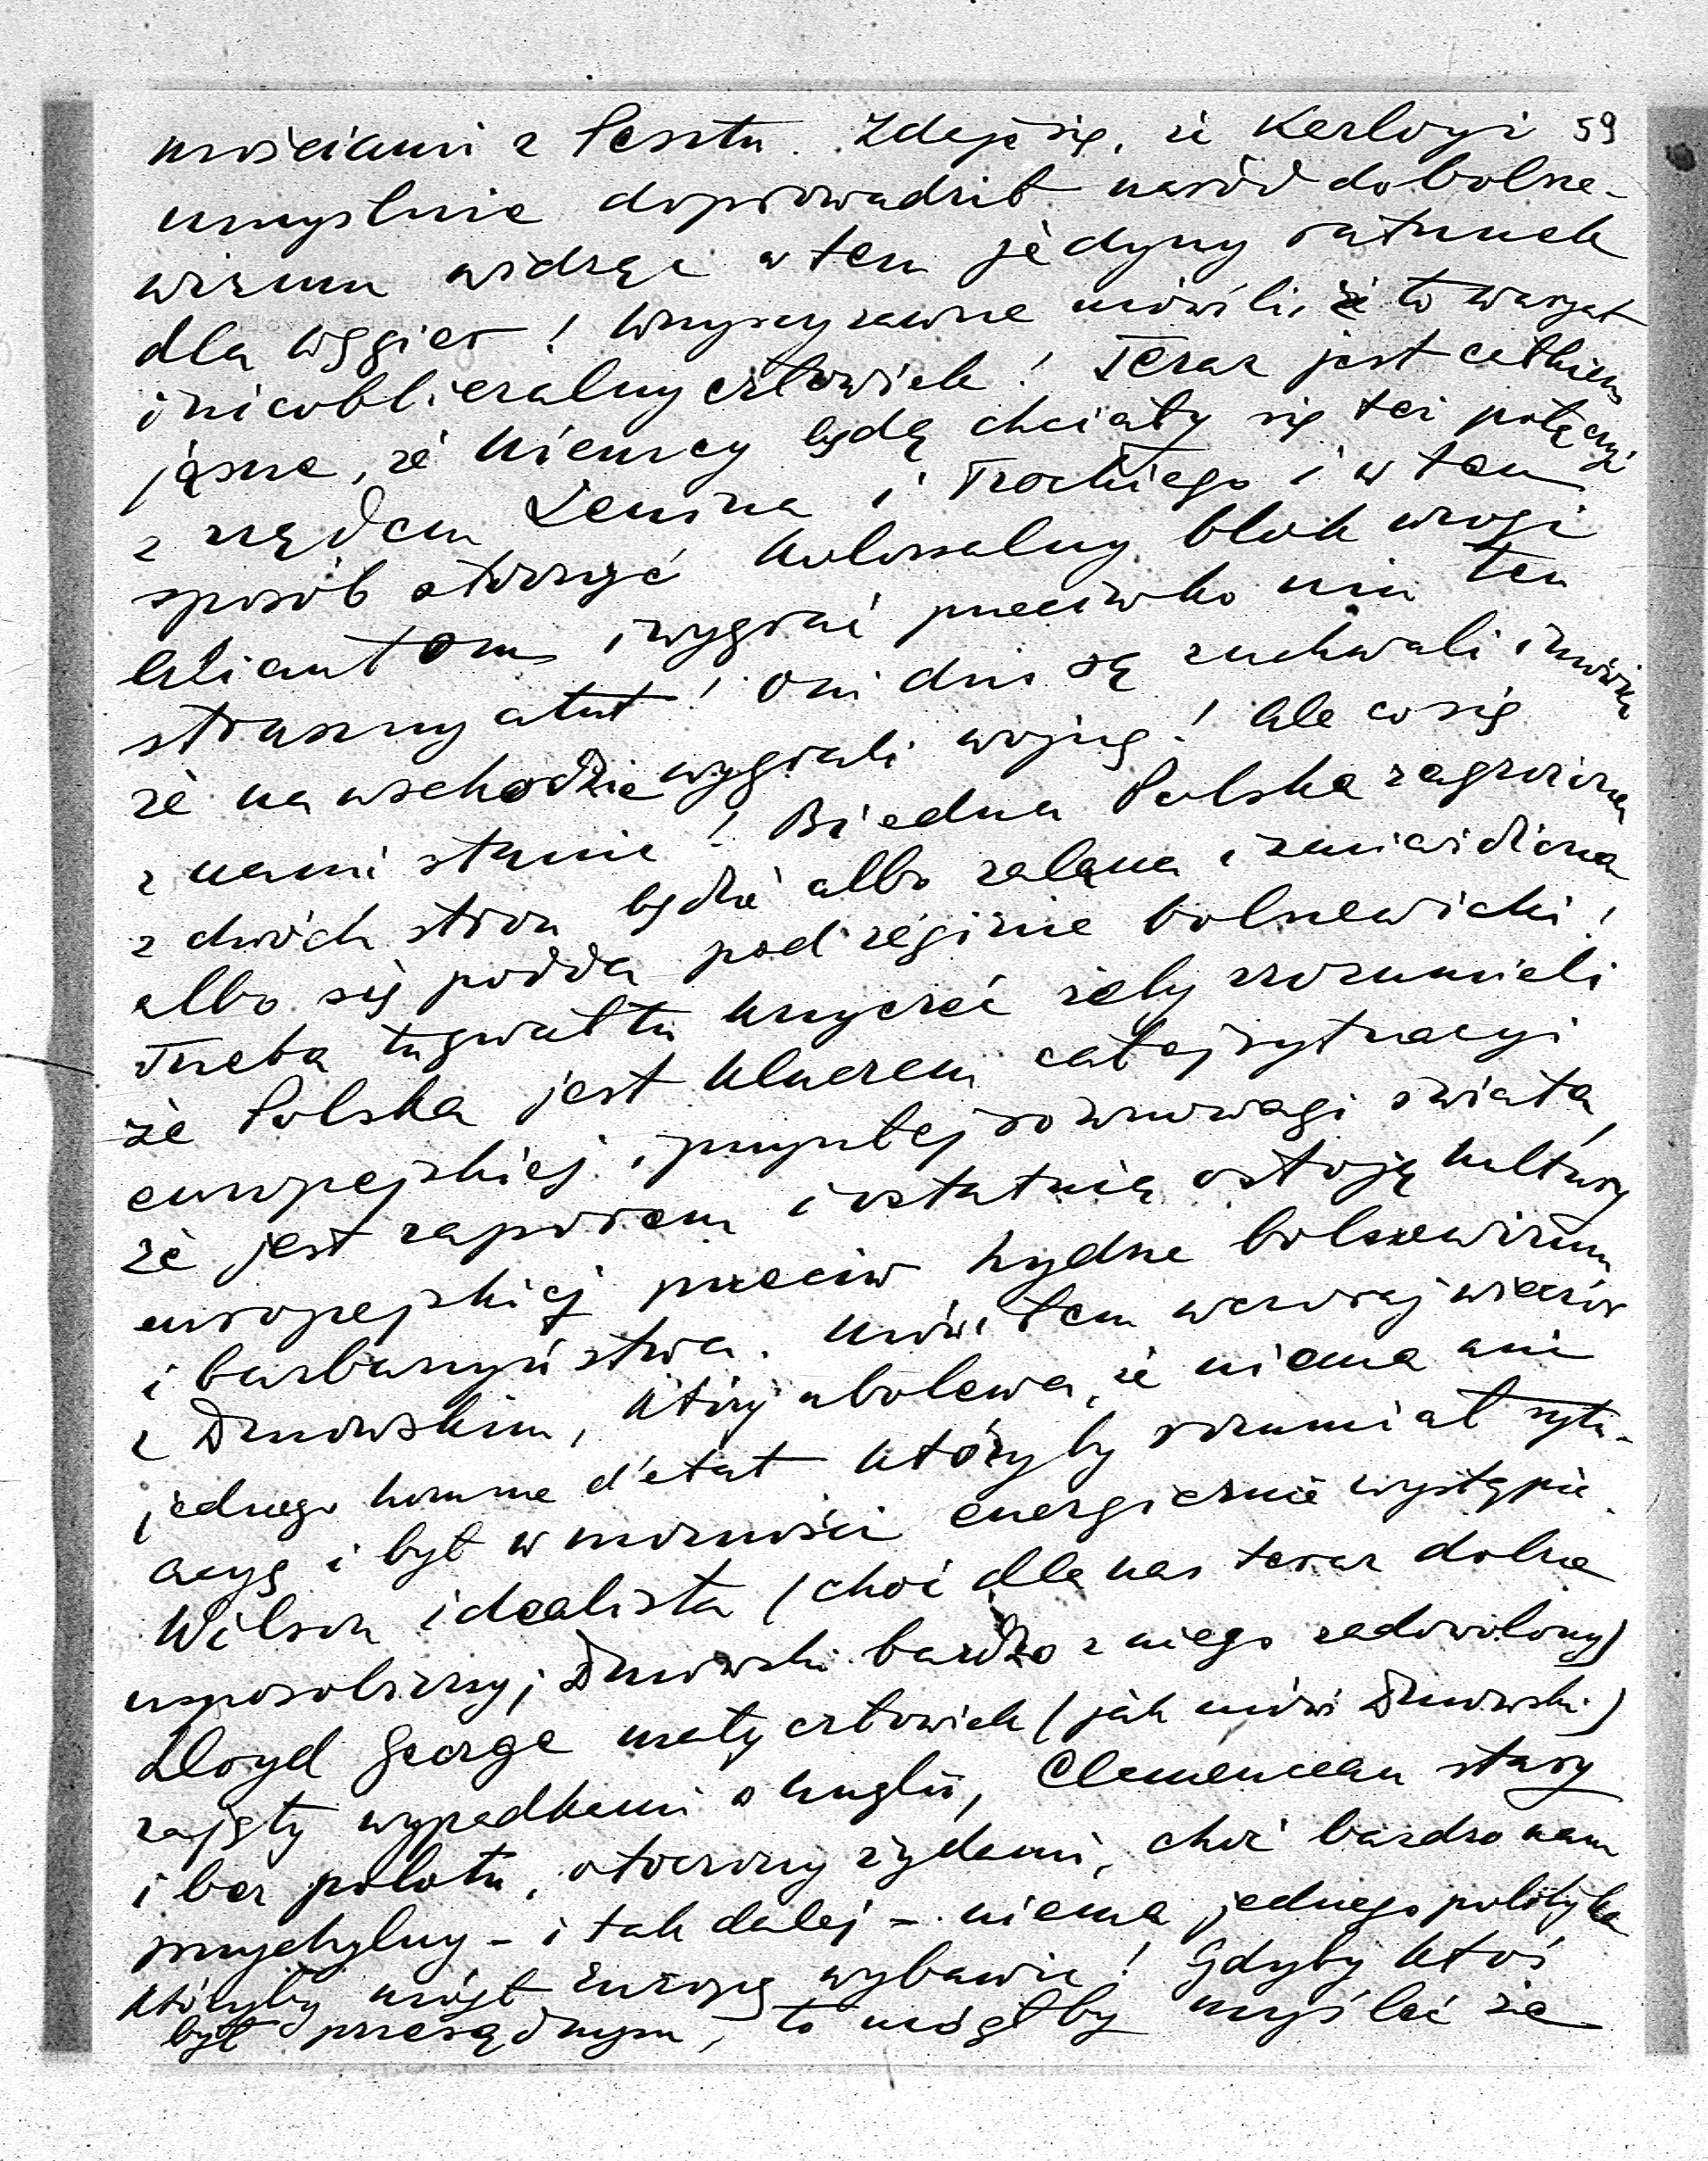 mościami z Pesztu. Zdaje się, że Karloyi 59
umyślnie doprowadził naród do bolsze-
wizmu widząc w tem jedyny ratunek
dla Węgier! Wszyscy zawsze mówili, że to waryat
i nieobliczalny człowiek! Teraz jest całkiem
jasne, że Niemcy będą chciały się też połączyć
z rządem Lenina i Trockiego i w ten
sposób stworzyć kolosalny blok wrogi
aliantom i wygrać przeciwko nim ten
straszny atut! Oni dziś są zuchwali i mówią
że na wschodzie wygrali wojnę! Ale co się
z nami stanie! Biedna Polska zagrożona
z dwóch stron będzie albo zalana i
albo się podda pod régime bolszewicki!
Trzeba tu gwałtu krzyczeć żeby zrozumieli
że Polska jest kluczem całej sytuacyi
europejskiej i przyszłej równowagi świata,
że jest zaporem i ostatnią ostoją kultury
europejskiej przeciw hydne bolszewizmu
i barbarzyństwa. Mówiłem wczoraj wieczór
z Dmowskim, który ubolewa, że niema ani
jednego homme d'état któryby rozumiał sytu-
acyę i był w możności energicznie wystąpić.
Wilson idealista (choć dla nas teraz dobrze
usposobiony; Dmowski bardzo z niego zadowolony)
Lloyd George mały człowiek (jak mówi Dmowski)
zajęty wypadkami w Anglii, Clemenceau stary
i bez polotu, otoczony żydami, choć bardzo nam
przychylny - i tak dalej - niema jednego polityka
któryby mógł Europę wybawić! Gdyby ktoś
był przesądnym, to mógłby myśleć że